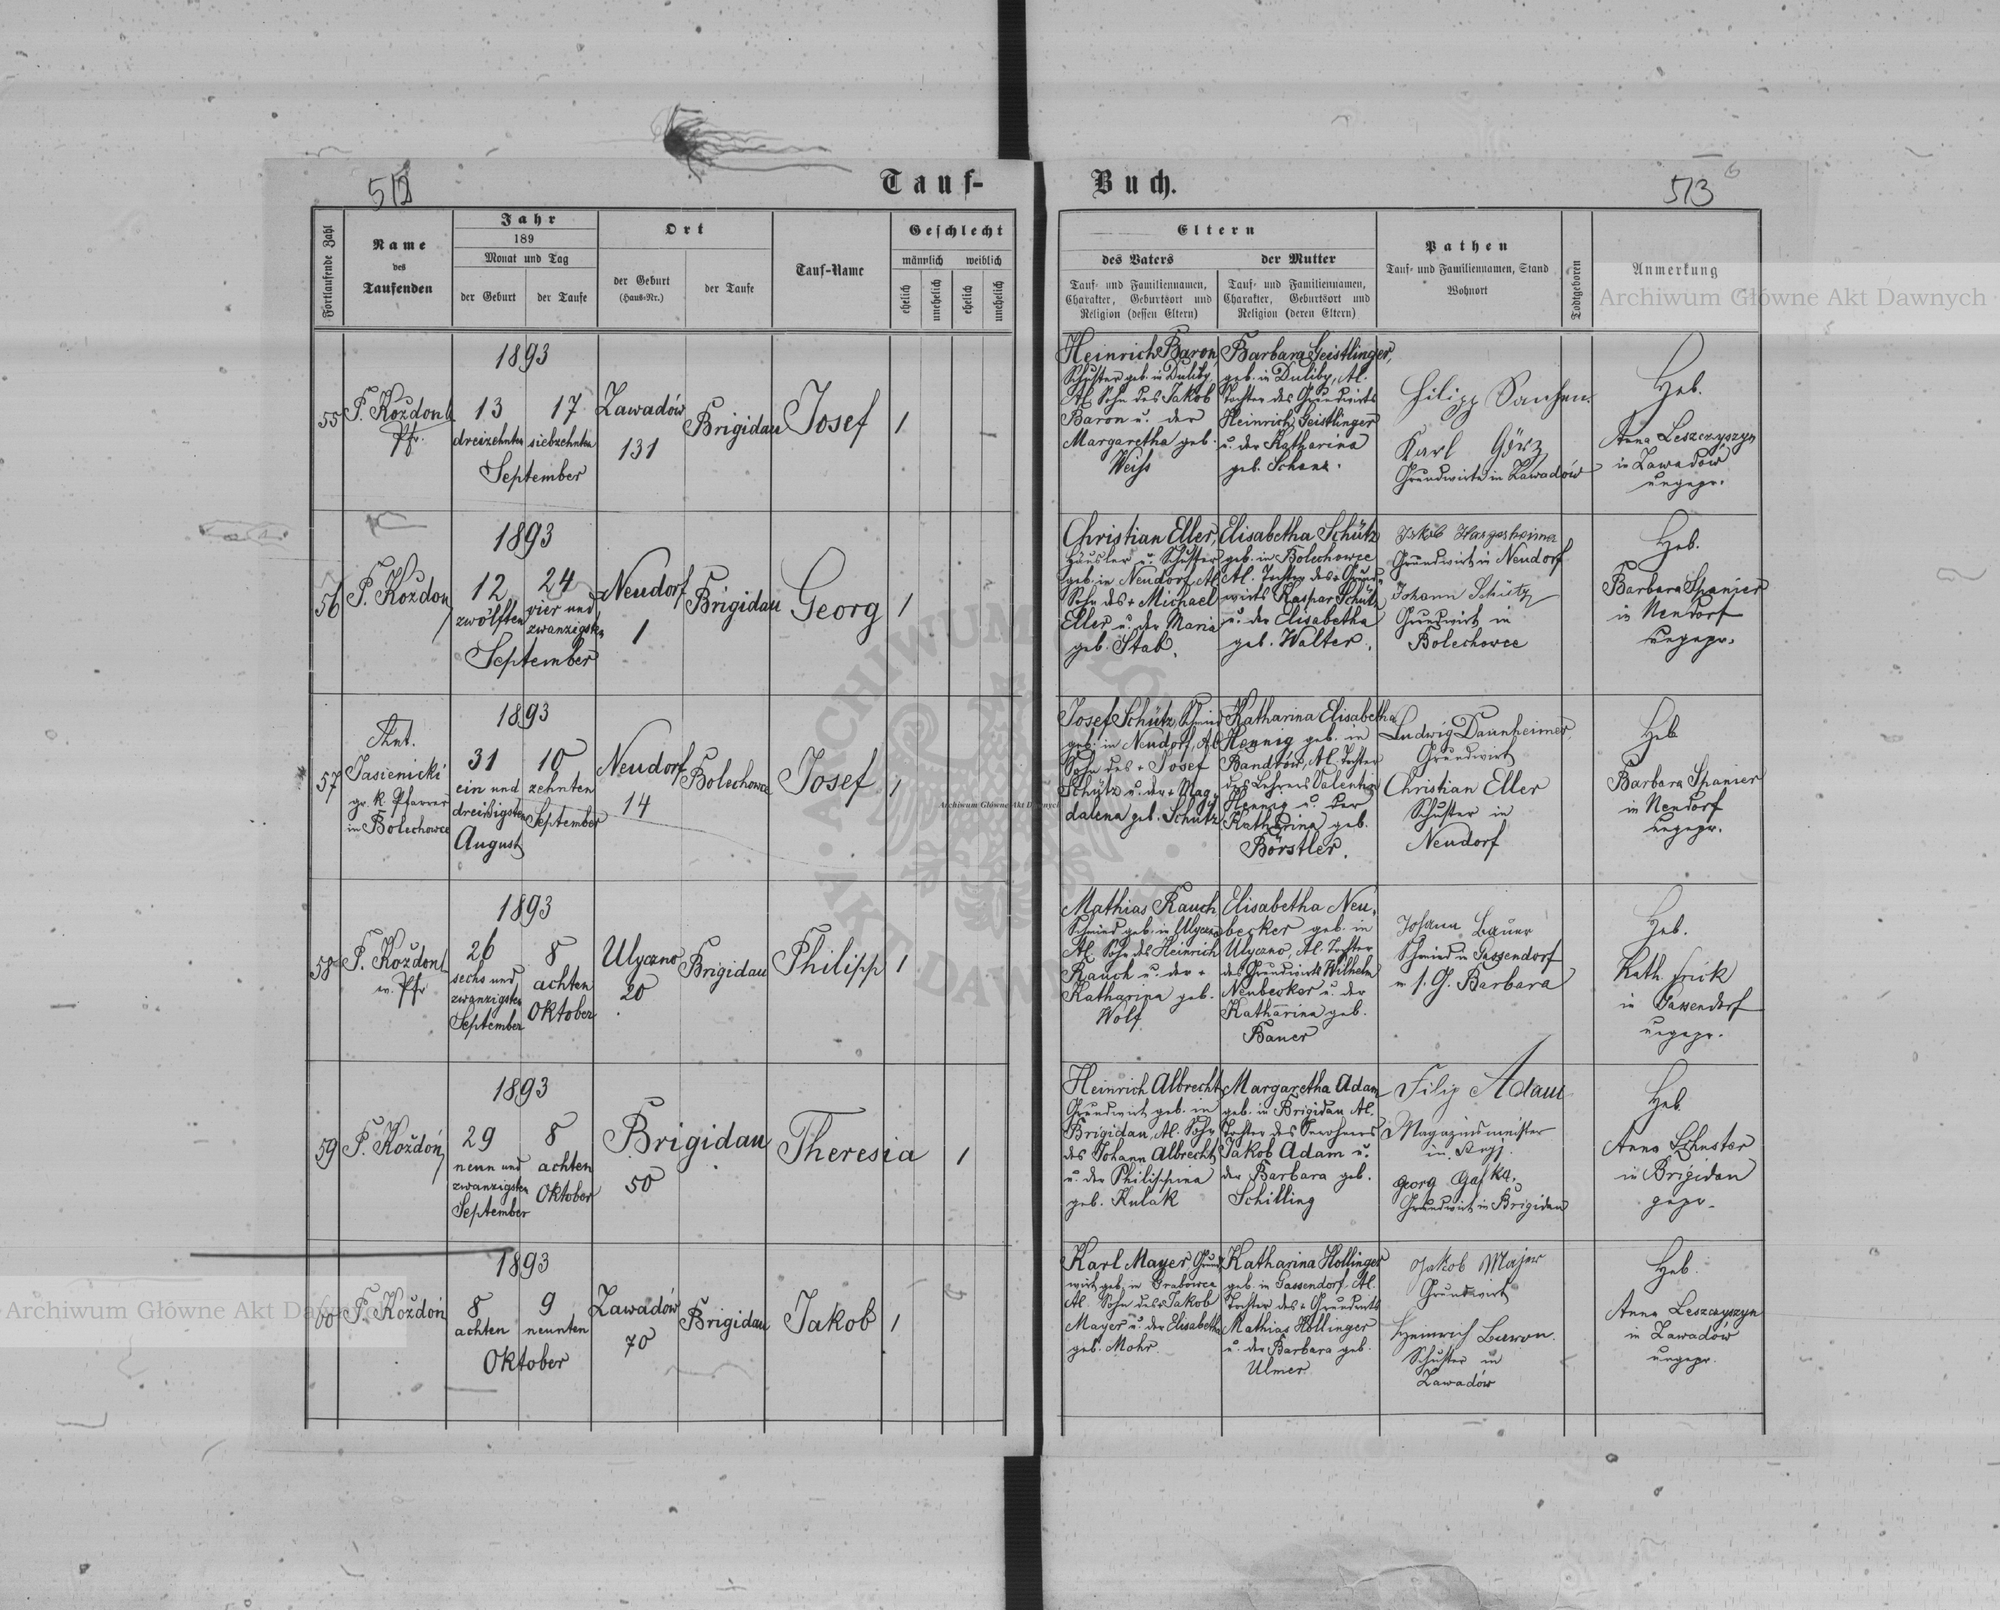 512
Tauf-
Buch.
513
Fortlaufende Zahl
Name
des
Taufenden
Jahr
189
Monat und Tag
der Geburt
der Taufe
Ort
der Geburt
(Haus-Nr.)
der Taufe
Tauf-Name
Geschlecht
männlich
weiblich
ehelich
unehelich
ehelich
unehelich
Eltern
des Vaters
Tauf- und Familiennamen,
Charakter, Geburtsort und
Religion (dessen Eltern)
der Mutter
Tauf- und Familiennamen,
Charakter, Geburtsort und
Religion (deren Eltern)
Pathen
Tauf- und Familiennamen, Stand
Wohnort
Todtgeboren
Anmerkung
55
Pfr.
1893
13
dreizehnten
17
siebzehnten
September
Zawadów
131
Brigidau
Josef
1
Heinrich Baron,
Schuster geb. in Duliby,
Al. Sohn des Jakob
Baron u. der
Margaretha geb.
Weiss
Barbara Geistlinger,
geb. in Duliby, Al.
Tochter des Grundwirts
Heinrich Geistlinger
u. der Katharina
geb. Schanz.
Filipp
Karl Görz
Grundwirte in Zawadów
Heb.
Anna Leszczyszyn
in Zawadów
ungepr.
56
P. Koždoń
1893
12
zwölften
24
vier und
zwanzigsten
September
Neudorf
1
Brigidau
Georg
1
Christian Eller,
Häusler u. Schuster
geb. in Neudorf, Al.
Sohn des + Michael
Eller u. der Maria
geb. Stab.
Elisabetha Schütz
geb. in Bolechowce
Al. Tochter des + Grund-
wirts Kaspar Schütz
u. der Elisabetha
geb. Walter.
Jakob Hargesheimer
Grundwirt in Neudorf
Johann Schütz
Grundwirt in
Bolechowce
Heb.
Barbara Spanier
in Neudorf
ungepr.
57
Jasienicki
gr. k. Pfarrer
in Bolechowce
1893
31
ein und
dreißigsten
August
10
zehnten
September
Neudorf
14
Bolechowce
Josef
1
Josef Schütz, Schmied
geb. in Neudorf, Al.
Sohn des + Josef
Schütz u. der + Mag-
dalena geb. Schütz
Katharina Elisabetha
Hennig geb. in
Bandrów, Al. Tochter
des Lehrers Valentin
Hennig u. der
Katharina geb.
Börstler.
Ludwig Daunheimer
Grundwirt
Christian Eller
Schuster in
Neudorf
Heb.
Barbara Spanier
in Neudorf
ungepr.
58
P. Koždoń
Pfr
1893
26
sechs und
zwanzigsten
September
8
achten
Oktober
Ulyczno
20
Brigidau
Philipp
1
Mathias Rauch
Schmied geb. in Ulyczno
Al. Sohn des Heinrich
Rauch u. der +
Katharina geb.
Wolf
Elisabetha Neu-
becker geb. in
Ulyczno, Al. Tochter
des Grundwirts Wilhelm
Neubecker u. der
Katharina geb.
Bauer
Johann Bauer
Schmied in Gassendorf
u. s. G. Barbara
Heb.
Kath. Frick
in Gassendorf
ungepr.
59
P. Koždoń
1893
29
neun und
zwanzigsten
September
8
achten
Oktober
Brigidau
50
Theresia
1
Heinrich Albrecht
Grundwirt geb. in
Brigidau, Al. Sohn
des Johann Albrecht
u. der Philippina
geb. Kulak
Margaretha Adam
geb. in Brigidau Al.
Jakob Adam u.
der Barbara geb.
Schilling
Filip Adam
Magazinsmeister
in Stryj.
Georg
Grundwirt in Brigidau
Heb.
Anna Schuster
in Brigidau
gepr.
60
P. Koždoń
1893
8
achten
9
neunten
Oktober
Zawadów
70
Brigidau
Jakob
1
Karl Mayer Grund-
wirt geb. in Grabowce
Al. Sohn des + Jakob
Mayer u. der Elisabetha
geb. Mohr.
Katharina Hollinger
geb. in Gassendorf, Al.
Tochter des + Grundwirts
Mathias Hollinger
u. der Barbara geb.
Ulmer
Jakob Majer
Grundwirt
Heinrich Baron.
Schuster in
Zawadów
Heb.
Anna Leszczyszyn
in Zawadów
ungepr.
Archiwum Główne Akt Dawnych
Archiwum Główne Akt Dawnych
Archiwum Główne Akt Dawnych